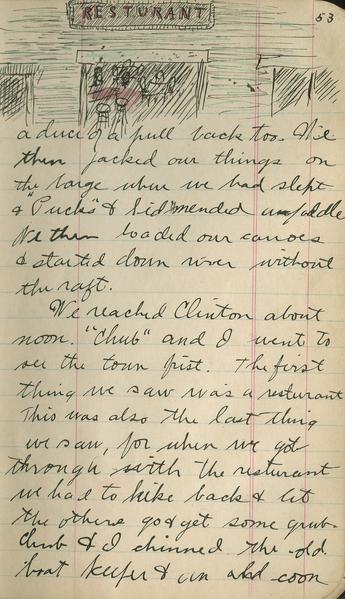 RESTURANT
53
a duce of a pull back too. We
then packed our things on
the barge where we had slept
& "Pucks" & Sid mended a paddle
We then loaded our canoes
& started down river without
the raft.
We reached Clinton about
noon. "Chub" and I went to
see the town first. The first
thing we saw was a resturant
This was also the last thing
we saw, for when we got
through with the resturant
we had to hike back & let
the others go & get some grub.
Chub & I chinned the old
boat keeper & an old coon